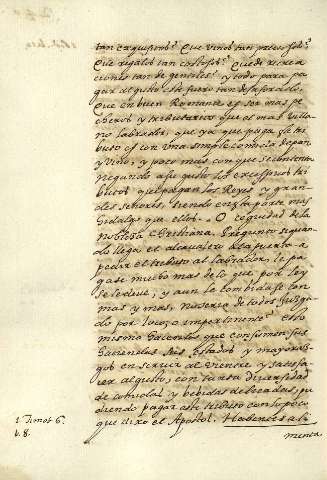 tan exquisitos? Que vinos tan preciosos?
Que regalos tan costosos? Que de recrea
ciones tan de gentiles? y todo para pa
gar al gusto este fuero tan desaforado,
Que en buen Romance es ser mas pe
cheros y tributarios que el mas villa
no labrador, que ya que paga este tri
buto es con una simple comida de pan,
y vino, y poco mas con que se contenta
negando a su gusto los excessivos tri
butos que le pagan los Reyes y gran
des señores, siendo en esta parte mas
hidalgo que ellos. O ceguedad de la
nobleza Christiana. Pregunto si quan
do llega el alcavalero a la puerta a
pedir el tributo al labrador, le pa
gase mucho mas de lo que por ley
se le deve, y aun le combidase con
mas y mas, no seria de todos juzga
do por loco, o impertinente? Esto
mismo hacen los que consumen sus
haciendas sus estados y mayoraz
gos en servir al vientre y satisfa
cer al gusto, con tanta diversidad
de comidas, y bebidas delicadas, pu
diendo pagar este tributo con lo poco
que dixo el Apostol. Habentes ali
menta
1. Timot 6.
v. 8.